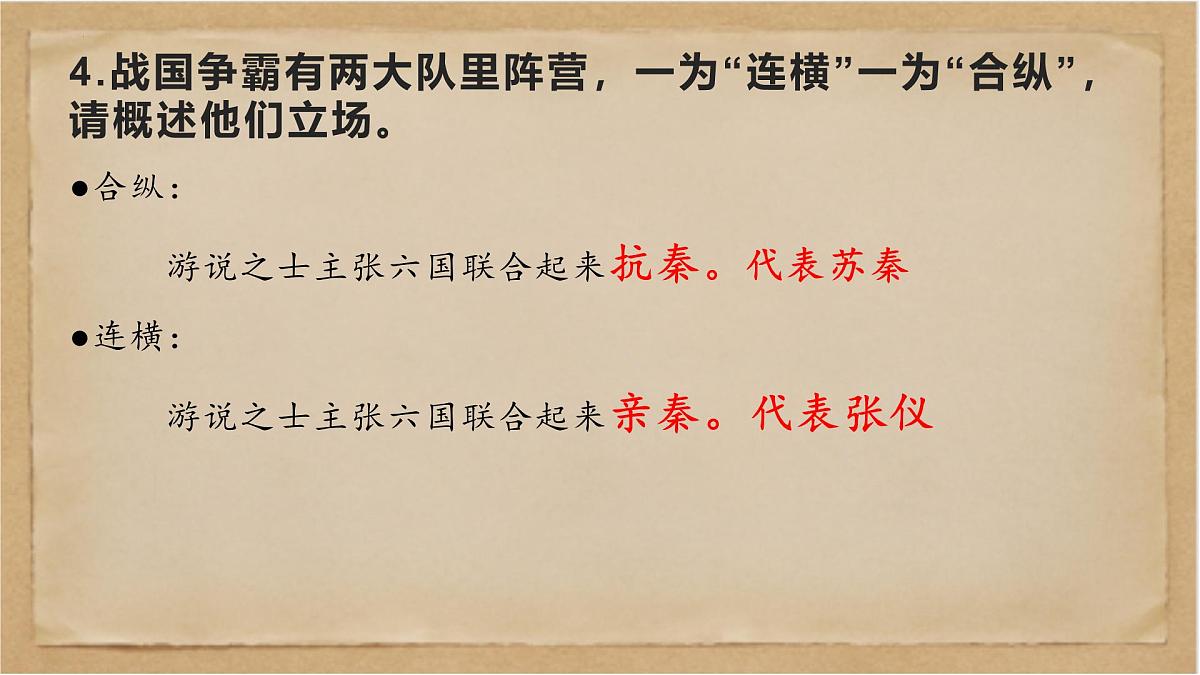 4.战国争霸有两大队里阵营，一为“连横”一为“合纵”，
请概述他们立场。
●合纵：
游说之士主张六国联合起来抗秦。代表苏秦
●连横：
游说之士主张六国联合起来亲秦。代表张仪